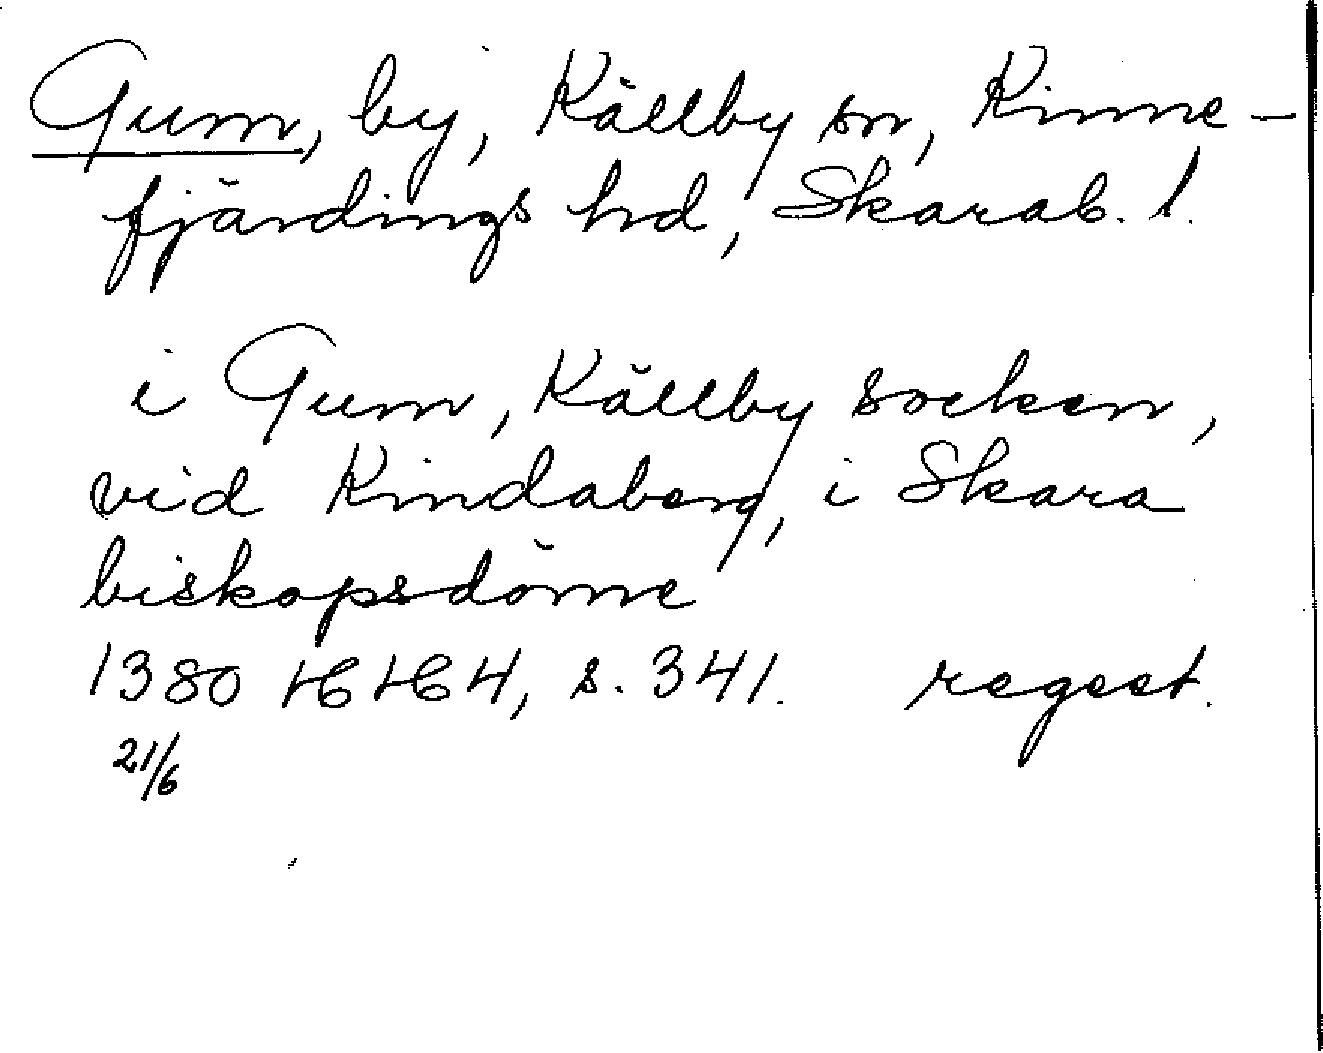 Gum, by, Källby sn, Kinne-
fjärdings hd, Skarab. l.
i Gum, Källby socken,
vid Kindaberg, i Skara
biskopsdöme
1380 HH 4, s. 341. regest.
21/6